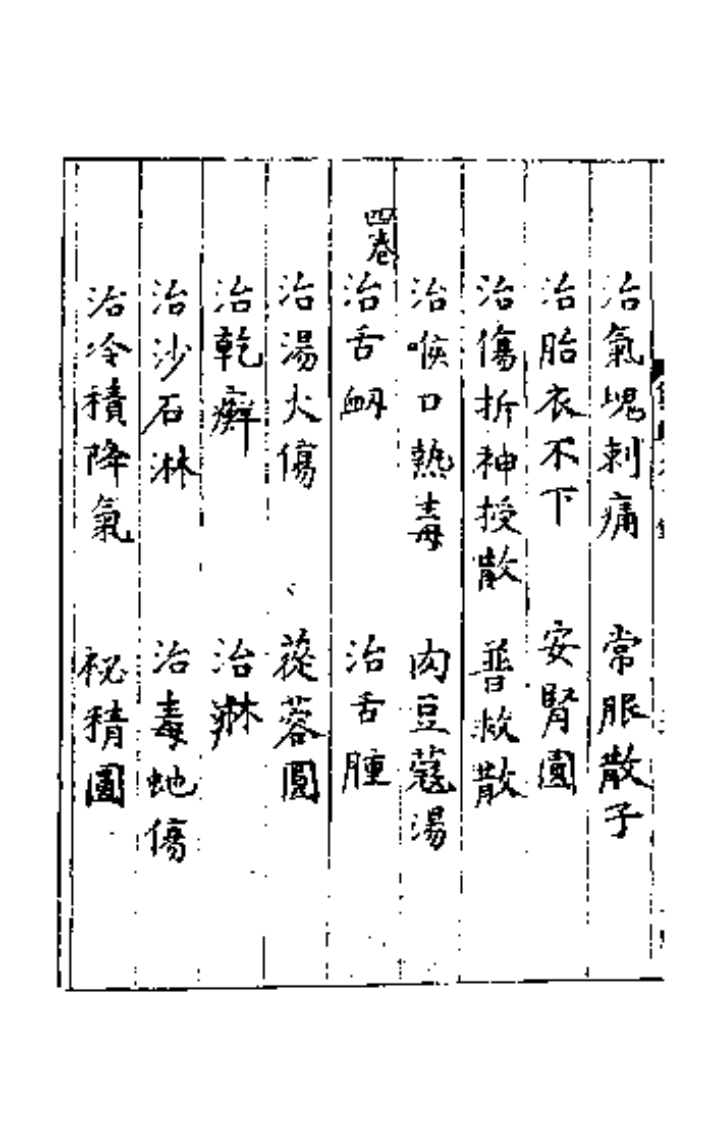 治氣塊刺痛　常服散子
治胎衣不下　安腎圓
治傷折神授散　普救散
治喉口熱毒　肉豆蔻湯
四卷
治舌衂　治舌腫
治湯火傷　蓯蓉圓
治乾癬　治痳
治沙石淋　治毒虵傷
治冷積降氣　秘精圓